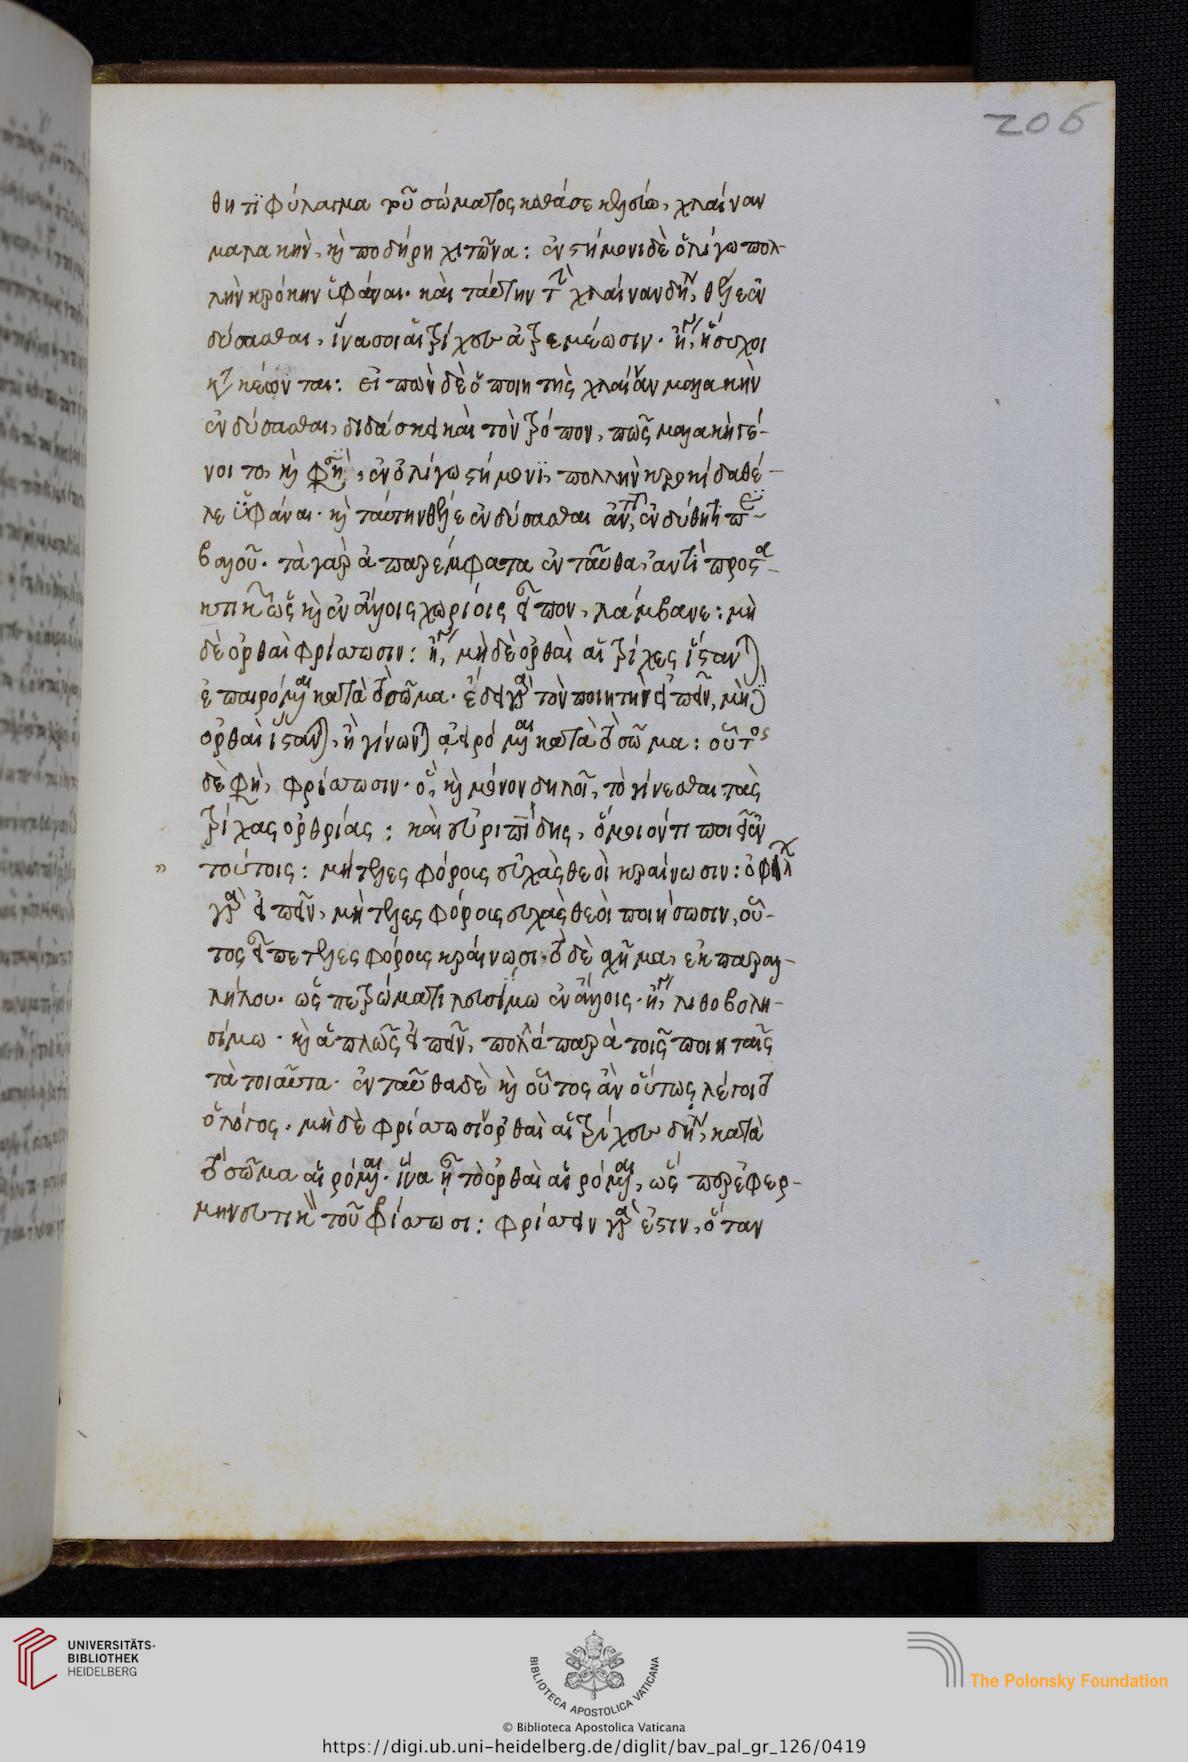 206
θητι φύλαγμα τοῦ σώματος καθάσε κελεύω, χλαίναν
μαλακὴν, καὶ ποδήρη χιτῶνα: ἐν στήμονι δὲ ὀλίγω πολ-
λὴν κρόκην ὑφάναι. καὶ ταύτην τὴν χλαίναν δὴ, θέλε ἐν
δύσασθαι, ἵνα σοι αἱ τρίχες ἀτρεμέωσιν. ἤγουν, ἥσυχοι
κέωνται: εἰπὼν δὲ ὁ ποιητὴς χλαίναν μαλακὴν
ἐνδύσασθαι, διδάσκει καὶ τὸν τρόπον, πῶς μαλακὴ γέ-
νοιτο, καὶ φησὶν, ἐν ὀλίγω στήμονι, πολλὴν κροκίδα θέ-
λε ὑφάναι. καὶ ταύτην θέλε ἐνδύσασθαι ἀντὶ, ἐνδύθητι περι-
βαλοῦ. τὰ γὰρ ἀπαρέμφατα ἐνταῦθα, ἀντὶ προστα-
κτικῶν ὡς καὶ ἐν ἄλλοις χωρίοις εἶπον, λάμβανε: μὴ
δὲ ὀρθαὶ φρίσσωσιν: ἤγουν, μὴ δὲ ὀρθαὶ αἱ τρίχες ἵστανται,
ἐπαιρόμεναι κατὰ τὸ σῶμα. ἔδει γὰρ τὸν ποιητὴν εἰπεῖν, μὴ
ὀρθαὶ ἵστανται, ἢ γίνωνται αἰρόμεναι κατὰ τὸ σῶμα: οὗτος
δὲ φησὶ, φρίσσωσιν. ὃ, καὶ μόνον δηλοῖ, τὸ γίνεσθαι τὰς
τρίχας ὀρθρίας: καὶ εὐριπίδης, ὅμοιόν τι ποιεῖ ἐν
τούτοις: μή τελεσφόρους εὐχὰς θεοὶ κραίνωσιν:
γὰρ εἰπεῖν, μὴ τελεσφόρους εὐχὰς θεοὶ ποιήσωσιν, οὗ-
τος εἶπε τελεσφόρους κραίνωσι. τὸ δὲ σχῆμα, ἐκ παραλ-
λήλου. ὡς πετρώματι λευσίμω ἐν ἄλλοις. ἤγουν, λιθοβολη-
σίμω. καὶ ἁπλῶς εἰπεῖν, πολλὰ παρὰ τοῖς ποιηταῖς
τὰ τοιαῦτα. ἐνταῦθα δὲ καὶ οὗτος ἂν οὕτως λέγοιτο
ὁ λόγος. μὴ δὲ φρίσσωσι ὀρθαὶ αἱ τρίχες δηλονότι, κατὰ
τὸ σῶμα αἰρόμεναι. ἵνα ᾖ τὸ ὀρθαὶ αἰρόμεναι, ὡς περ ἐφερ-
μηνευτικὸν τοῦ φρίσσωσι: φρίσσειν γὰρ ἐστιν, ὅταν
UNIVERSITÄTS-
BIBLIOTHEK
HEIDELBERG
BIBLIOTECA APOSTOLICA VATICANA
The Polonsky Foundation
© Biblioteca Apostolica Vaticana
https://digi.ub.uni-heidelberg.de/diglit/bav_pal_gr_126/0419